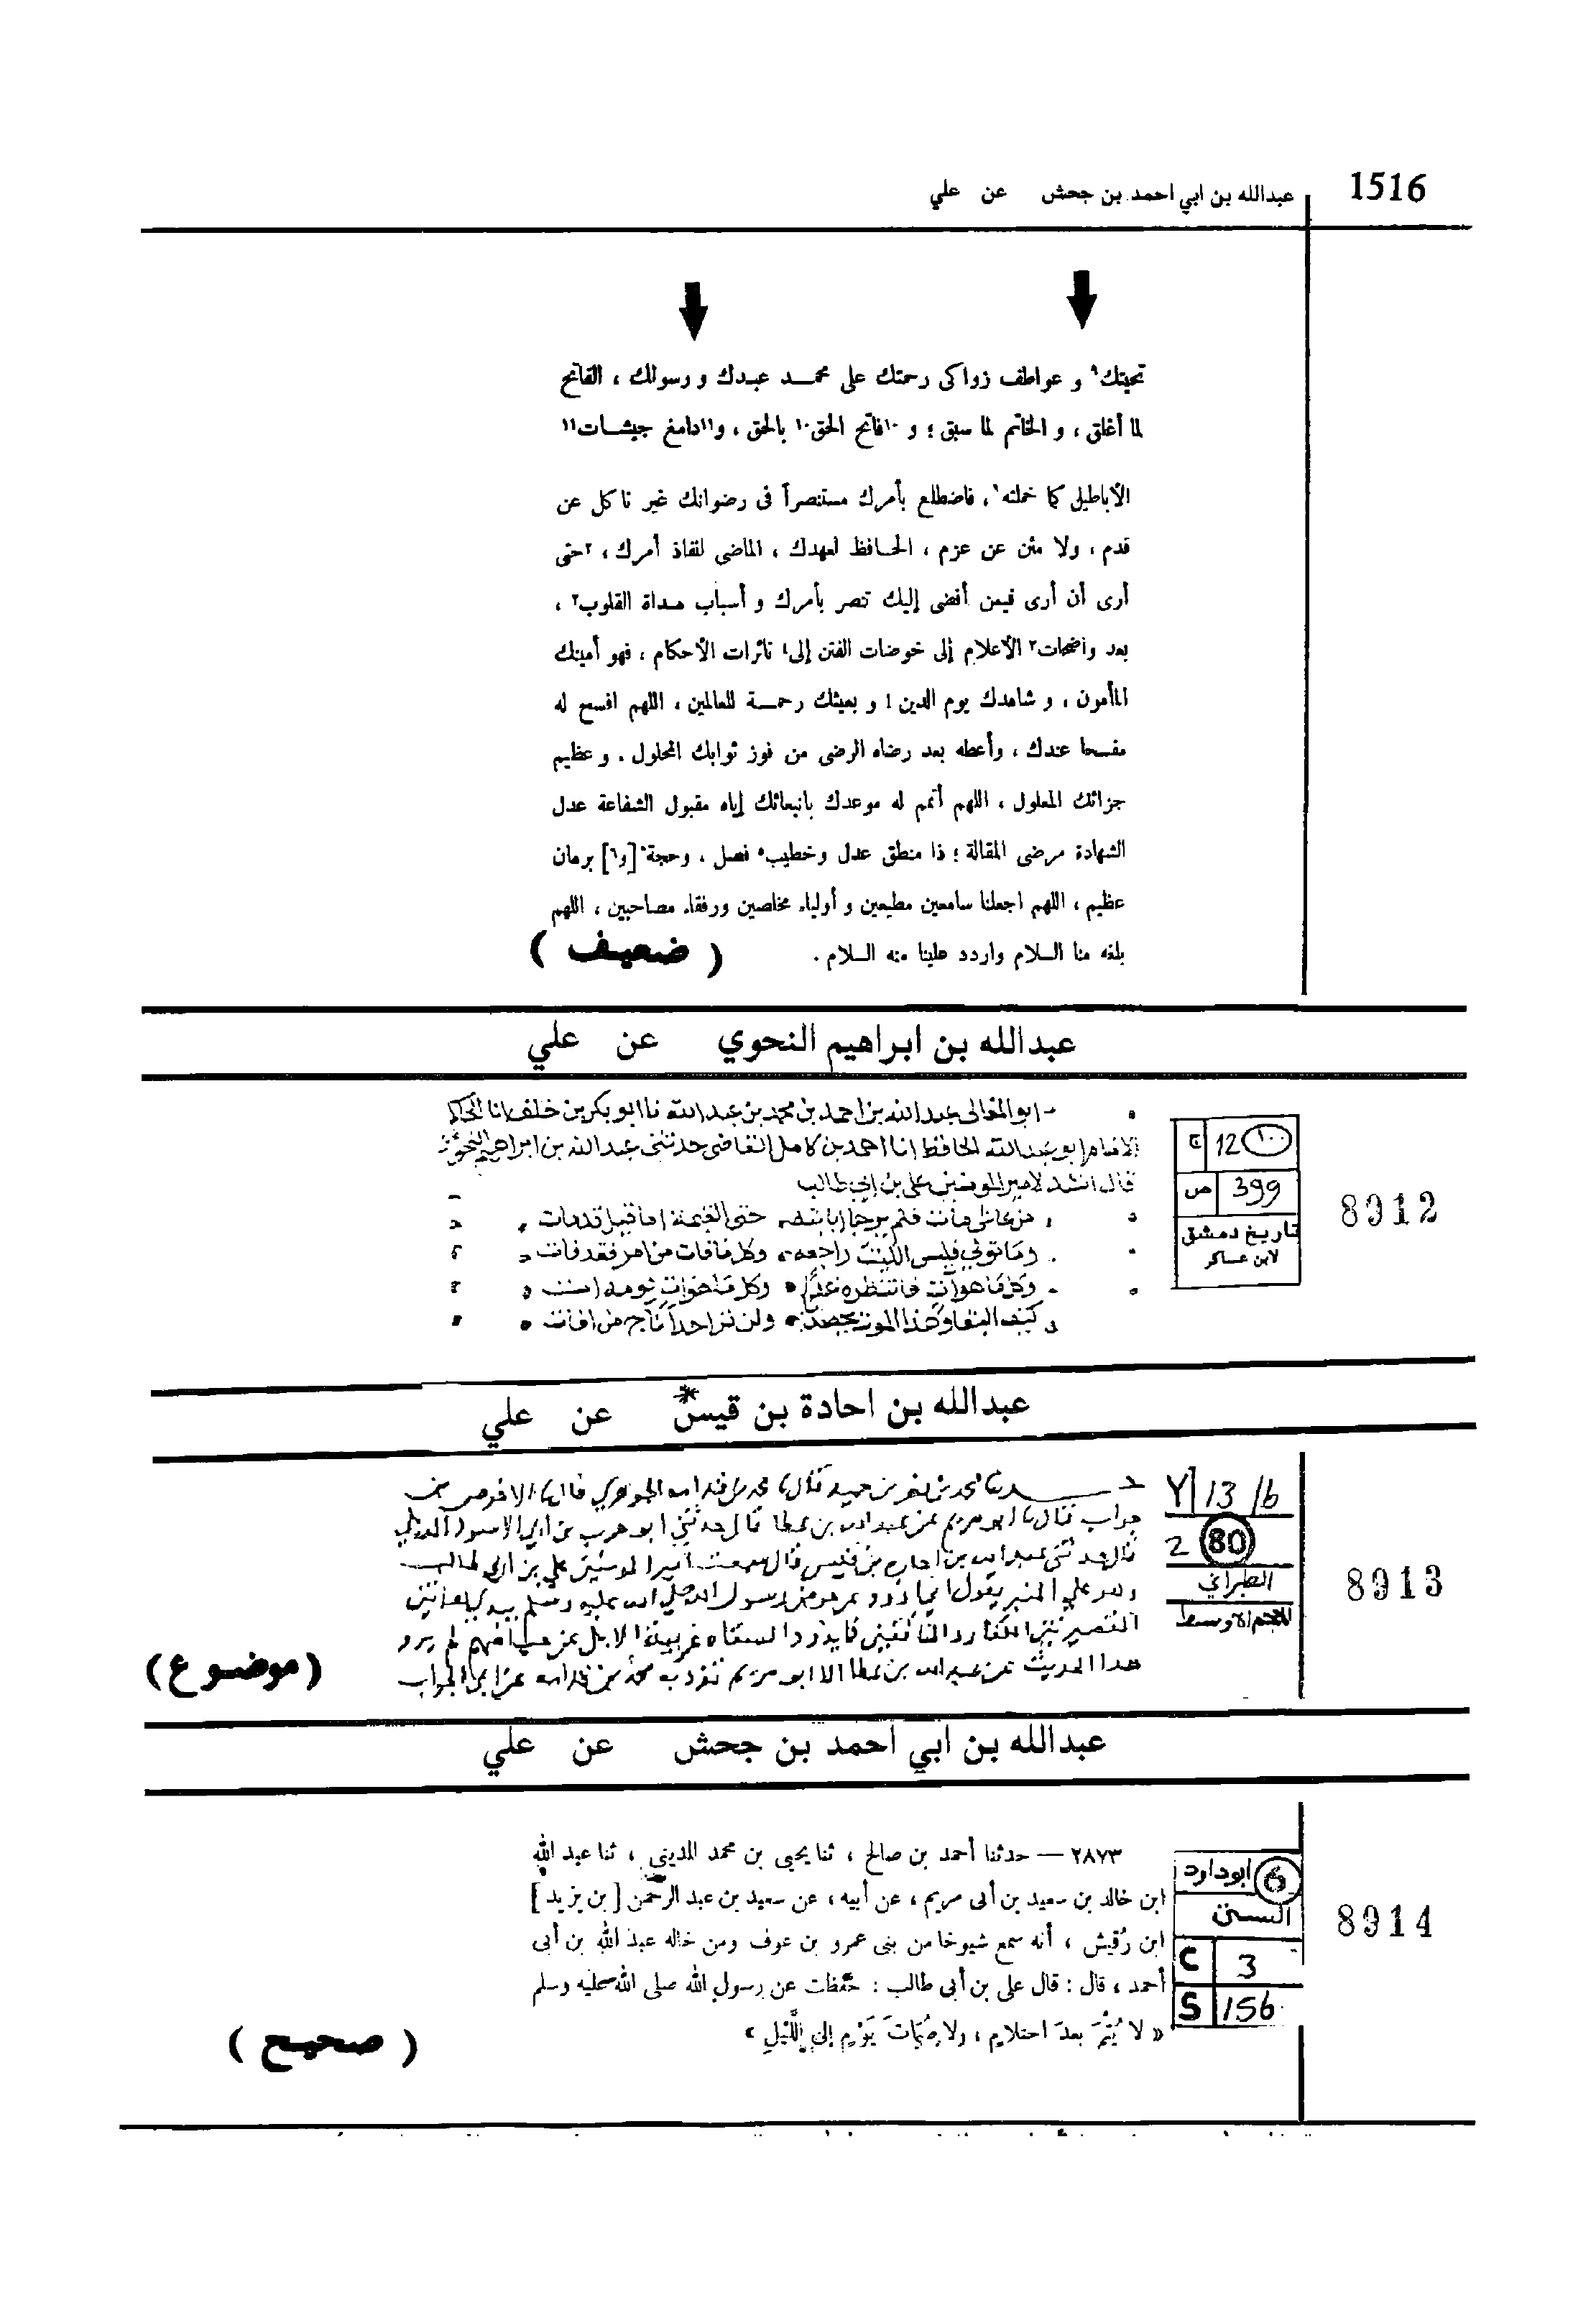 1516
عبدالله بن ابي احمد بن جحش عن علي
تحيتك٩ و عواطف زواكى رحمتك على محمد عبدك و رسولك ، الفاتح
لما أغلق ، و الخاتم لما سبق ؛ و ١٠فاتح الحق١٠ بالحق ، و١١دامغ جيشات١١
الأباطيل كما حملته١ ، فاضطلع بأمرك مستنصراً فى رضوانك غير ناكل عن
قدم ، ولا مثن عن عزم ، الحافظ لعهدك ، الماضى لنفاذ أمرك ، ٢حتى
أرى أن أرى فيمن أفضى إليك تنصر بأمرك و أسباب هداة القلوب٢ ،
بعد واضحات٣ الأعلام إلى خوضات الفتن إلى٤ نائرات الأحكام ، فهو أمينك
المأمون ، و شاهدك يوم الدين ؛ و بعيثك رحمة للعالمين ، اللهم افسح له
مفسحا عندك ، وأعطه بعد رضاه الرضى من فوز ثوابك المحلول . و عظيم
جزائك المعلول ، اللهم أتمم له موعدك بانبعاثك إياه مقبول الشفاعة عدل
الشهادة مرضى المقالة ؛ ذا منطق عدل وخطيب٥ فصل ، وحجة٥ [و٦] برهان
عظيم ، اللهم اجعلنا سامعين مطيعين و أولياء مخلصين ورفقاء مصاحبين ، اللهم
بلغه منا السلام واردد علينا منه السلام . ( ضعيف )
عبدالله بن ابراهيم النحوي عن علي
ابو المعالي عبد الله بن احمد بن محمد بن عبد الله نا ابو بكر بن خلف انا الحاكم
الامام ابو عبد الله الحافظ انا احمد بن كامل القاضي حدثني عبد الله بن ابراهيم النحوي
قال انشد لامير المومنين علي بن ابي طالب
حتى القيمة اما قيل قد مات
راجعه وكل ما فات من امر فقد فات
وكل ما هو آت فانتظره غدا
كيف البقا وهذا الموت يحصدنا
ج 12 ١٠٠
ص 399
تاريخ دمشق
لابن عساكر
8912
عبدالله بن احادة بن قيس* عن علي
محمد بن نصر بن حميد قال نا محمد بن قدامه الجوهري قال نا الاخوص بن
جواب قال نا ابو مريم عن عبد الله بن عطا قال حدثني ابو حرب بن ابي الاسود الديلي
قال حدثني عبد الله بن اجاره بن قيس قال سمعت امير المومنين علي بن ابي طالب
وهو علي المنبر يقول انا اذود عن حوض رسول الله صلي الله عليه وسلم بيدي هاتين
القصيرتين الكفار والمنافقين كما يذود السقاه غريبة الابل عن حياضهم لم يرو
هذا الحديث عن عبد الله بن عطا الا ابو مريم تفرد به محمد بن قدامه عن ابي الجواب
(موضوع)
Y 13 /b
2 80
الطبراني
المعجم الاوسط
8913
عبدالله بن ابي احمد بن جحش عن علي
٢٨٧٣ — حدثنا أحمد بن صالح ، ثنا يحيى بن محمد المدينى ، ثنا عبد الله
ابن خالد بن سعيد بن أبى مريم ، عن أبيه ، عن سعيد بن عبد الرحمن [ بن يزيد ]
ابن رُقيش ، أنه سمع شيوخا من بنى عمرو بن عوف ومن خاله عبد الله بن أبى
أحمد ، قال : قال على بن أبى طالب : حفظت عن رسول الله صلى الله عليه وسلم
« لا يُتْمَ بعدَ احتلامٍ ، ولا صُمَاتَ يَوْمٍ إلى اللَّيْلِ »
( صحيح )
6 ابوداود
السنن
C 3
S 156
8914